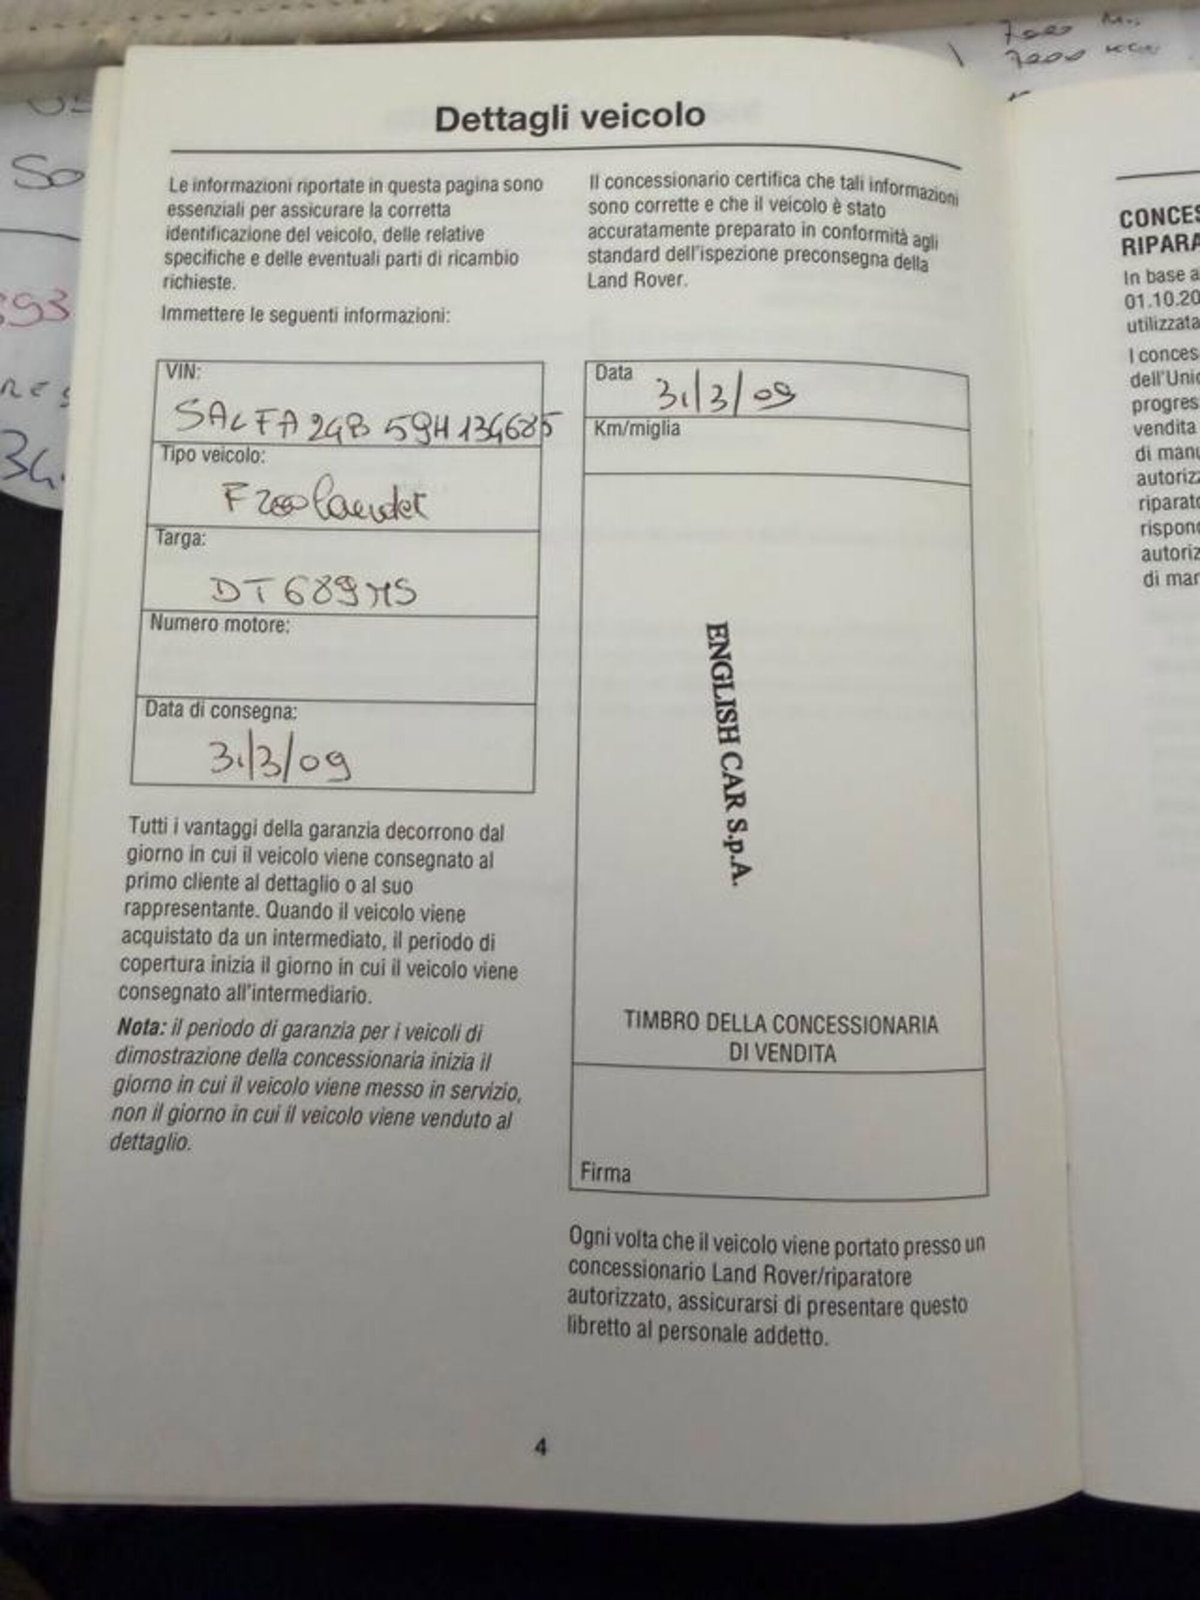 Dettagli veicolo
Le informazioni riportate in questa pagina sono
essenziali per assicurare la corretta
identificazione del veicolo, delle relative
specifiche e delle eventuali parti di ricambio
richieste.
Immettere le seguenti informazioni:
VIN:
SALFA24B59H134685
Tipo veicolo:
Freelander
Targa:
DT689MS
Numero motore:
Data di consegna:
31/3/09
Tutti i vantaggi della garanzia decorrono dal
giorno in cui il veicolo viene consegnato al
primo cliente al dettaglio o al suo
rappresentante. Quando il veicolo viene
acquistato da un intermediato, il periodo di
copertura inizia il giorno in cui il veicolo viene
consegnato all'intermediario.
Nota: il periodo di garanzia per i veicoli di
dimostrazione della concessionaria inizia il
giorno in cui il veicolo viene messo in servizio,
non il giorno in cui il veicolo viene venduto al
dettaglio.
Il concessionario certifica che tali informazioni
sono corrette e che il veicolo è stato
accuratamente preparato in conformità agli
standard dell'ispezione preconsegna della
Land Rover.
Data
31/3/09
Km/miglia
ENGLISH CAR S.p.A.
TIMBRO DELLA CONCESSIONARIA
DI VENDITA
Firma
Ogni volta che il veicolo viene portato presso un
concessionario Land Rover/riparatore
autorizzato, assicurarsi di presentare questo
libretto al personale addetto.
4
CONCES
RIPARA
In base a
01.10.20
utilizzata
I conces
dell'Unio
progres
vendita
di manu
autorizz
riparato
rispond
autoriz
di mar